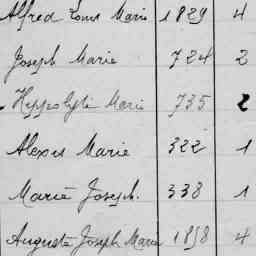 Alfred Louis Marie 1829 4
Joseph Marie 724 2
Hippolyte Marie 735 2
Alexis Marie 322 1
Marie Joseph. 338 1
Auguste Joseph Marie 1858 4